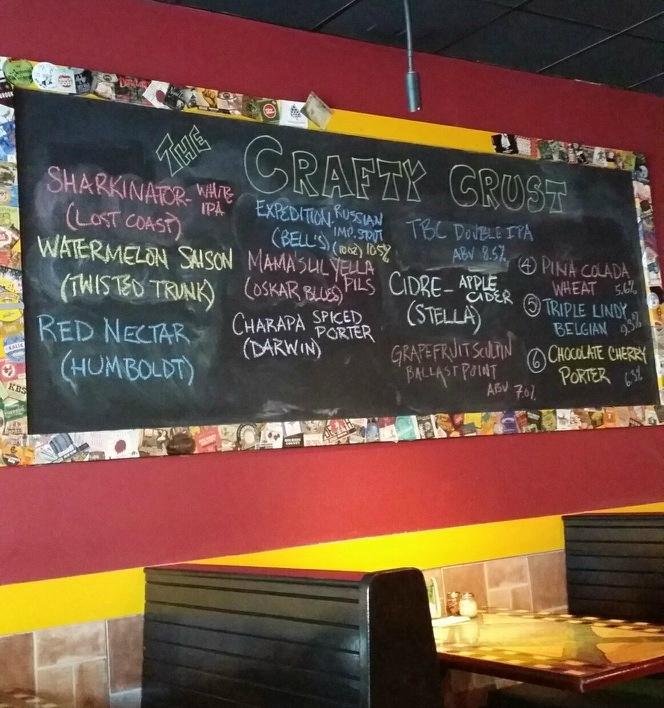 THE
CRAFTY CRUST
SHARKINATOR- WHITE
IPA
(LOST COAST)
WATERMELON SAISON
(TWISTED TRUNK)
RED NECTAR
(HUMBOLDT)
EXPEDITION- RUSSIAN
IMP. STOUT
(BELL'S) (10OZ) 10.5%
MAMA'S LIL YELLA
PILS
(OSKAR BLUES)
CHARAPA SPICED
PORTER
(DARWIN)
TBC DOUBLE IPA
ABV 8.5%
CIDRE- APPLE
CIDER
(STELLA)
GRAPEFRUIT SCULPIN
BALLAST POINT
ABV 7.0%
④ PINA COLADA
WHEAT 5.6%
⑤ TRIPLE LINDY
BELGIAN 9.3%
⑥ CHOCOLATE CHERRY
PORTER 6.3%
KBS